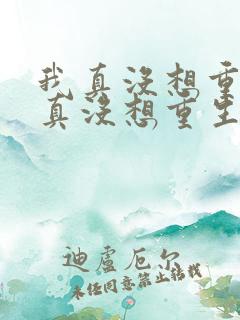 我真没想重
真没想重生
迪卢厄尔
未经同意禁止转载